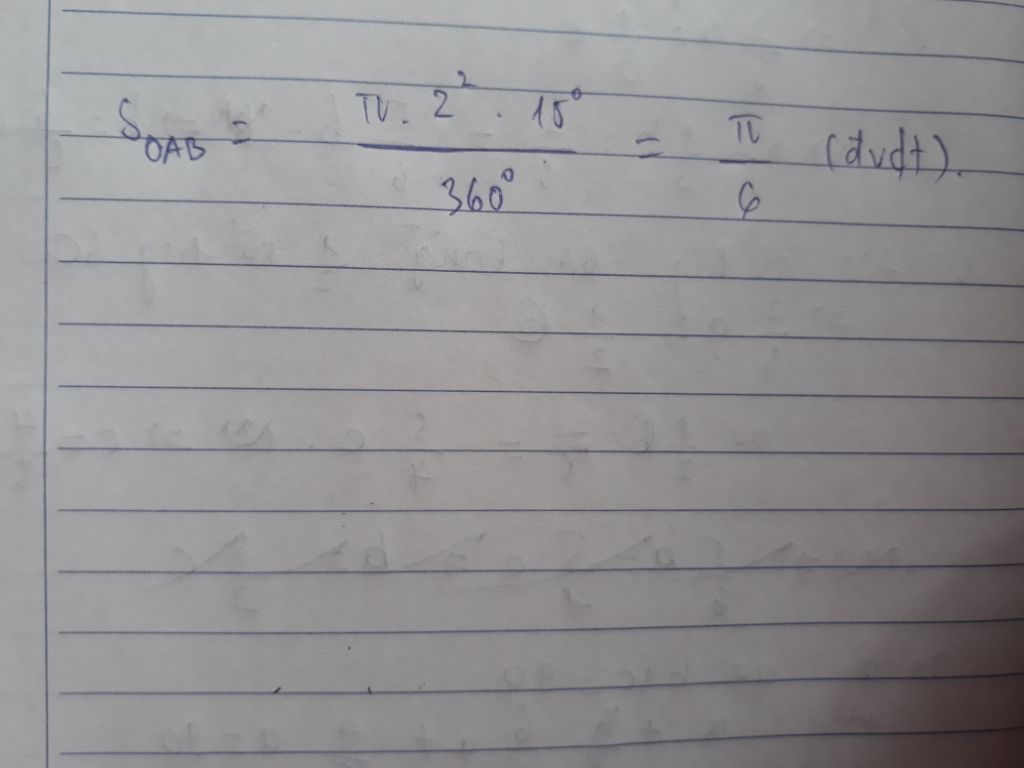 S_OAB = (π . 2² . 15°) / 360° = π / 6 (đvdt).